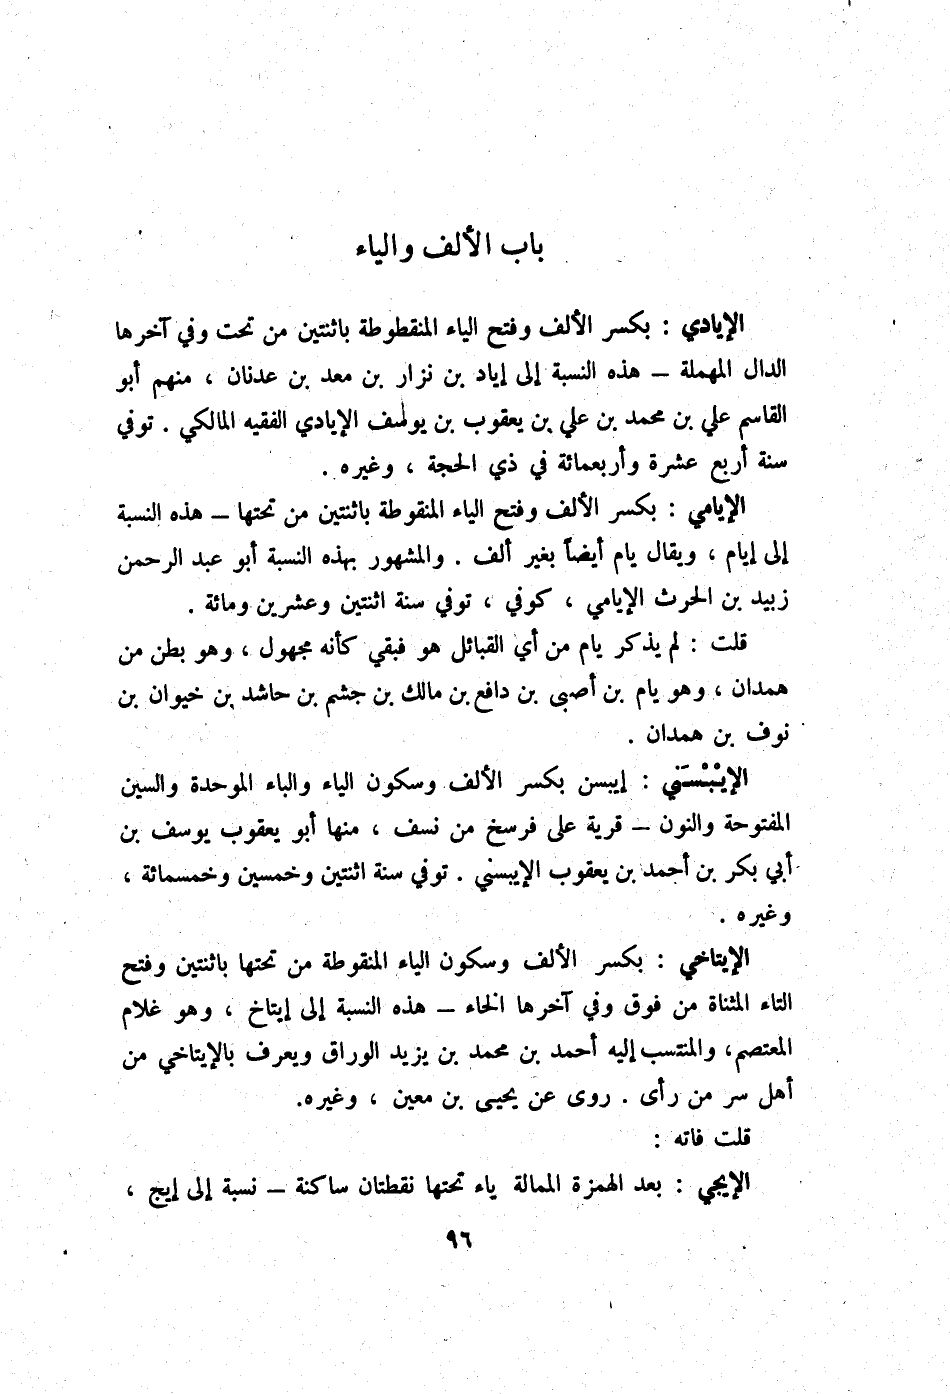 باب الألف والياء
الإيادي : بكسر الألف وفتح الياء المنقطوطة باثنتين من تحت وفي آخرها
الدال المهملة – هذه النسبة إلى إياد بن نزار بن معد بن عدنان ، منهم أبو
القاسم علي بن محمد بن علي بن يعقوب بن يوسف الإيادي الفقيه المالكي . توفي
سنة أربع عشرة وأربعمائة في ذي الحجة ، وغيره .
الإيامي : بكسر الألف وفتح الياء المنقوطة باثنتين من تحتها – هذه النسبة
إلى إيام ، ويقال يام أيضاً بغير ألف . والمشهور بهذه النسبة أبو عبد الرحمن
زبيد بن الحرث الإيامي ، كوفي ، توفي سنة اثنتين وعشرين ومائة .
قلت : لم يذكر يام من أي القبائل هو فبقي كأنه مجهول ، وهو بطن من
همدان ، وهو يام بن أصبى بن دافع بن مالك بن جشم بن حاشد بن خيوان بن
نوف بن همدان .
الإيْبْسَني : إيبسن بكسر الألف وسكون الياء والباء الموحدة والسين
المفتوحة والنون – قرية على فرسخ من نسف ، منها أبو يعقوب يوسف بن
أبي بكر بن أحمد بن يعقوب الإيبسني . توفي سنة اثنتين وخمسين وخمسمائة ،
وغيره .
الإيتاخي : بكسر الألف وسكون الياء المنقوطة من تحتها باثنتين وفتح
التاء المثناة من فوق وفي آخرها الخاء – هذه النسبة إلى إيتاخ ، وهو غلام
المعتصم، والمنتسب إليه أحمد بن محمد بن يزيد الوراق ويعرف بالإيتاخي من
أهل سر من رأى . روى عن يحيى بن معين ، وغيره.
قلت فاته :
الإيجي : بعد الهمزة الممالة ياء تحتها نقطتان ساكنة – نسبة إلى إيج ،
٩٦